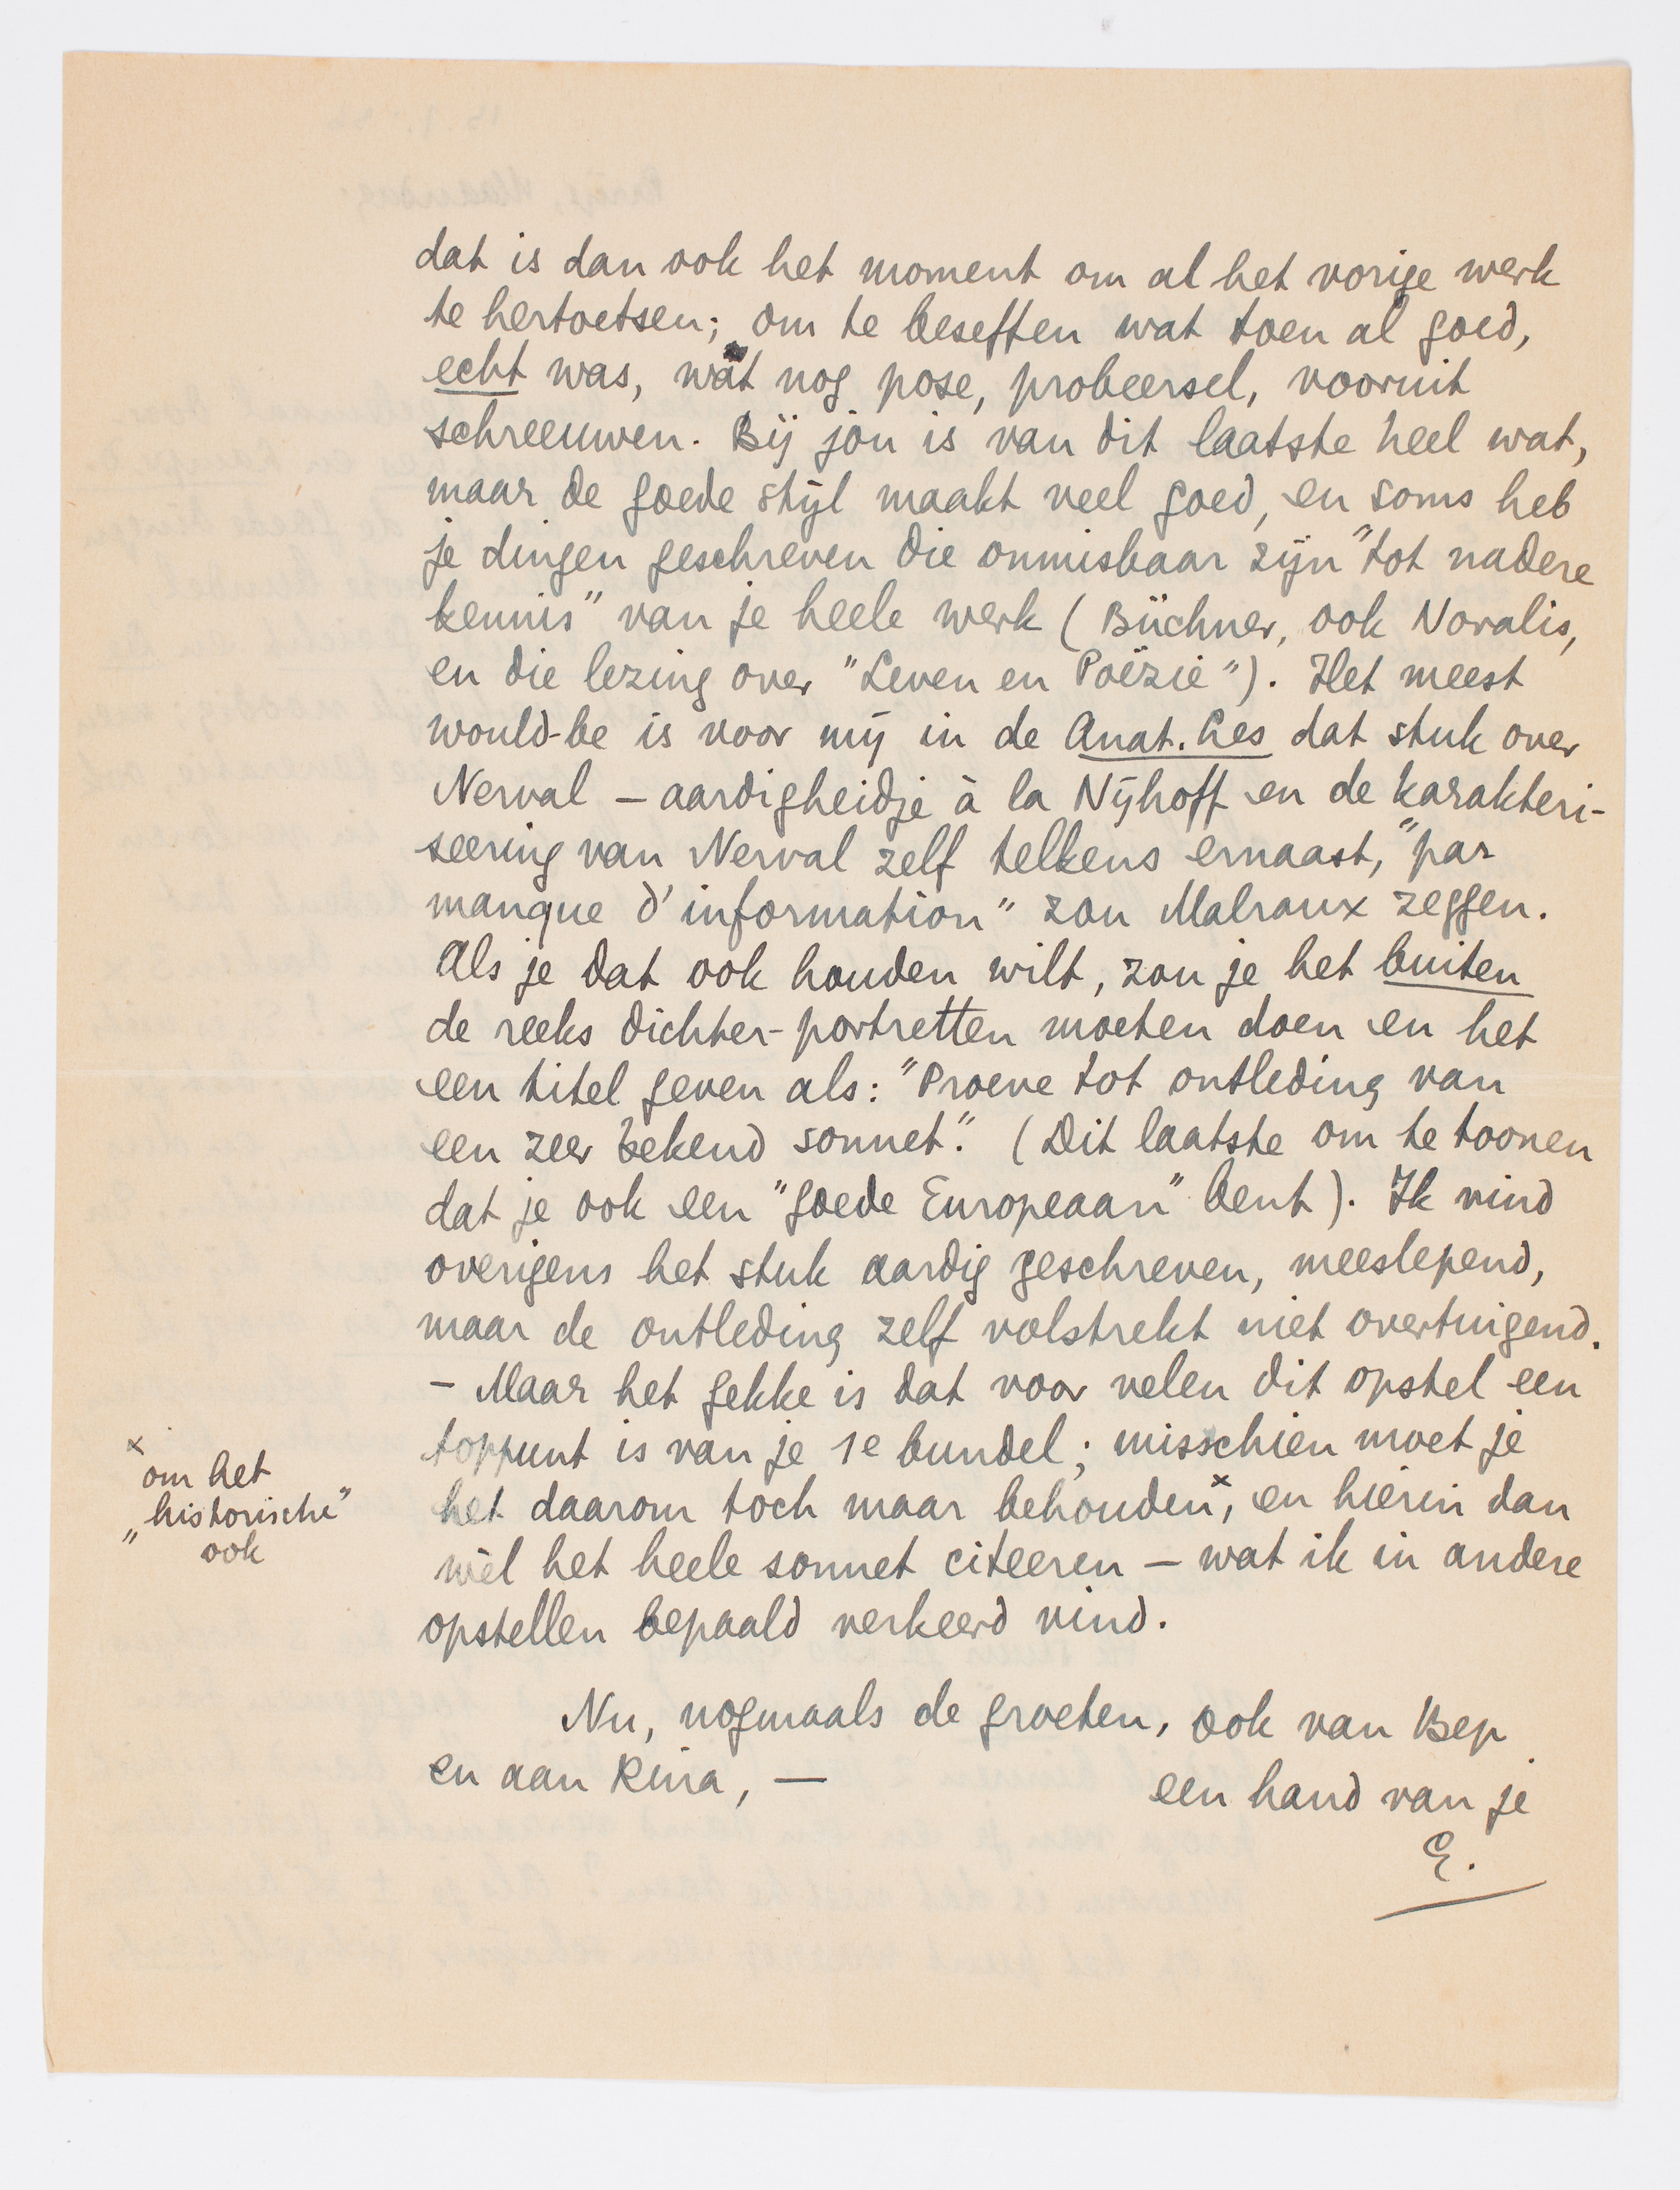 dat is dan ook het moment om al het vorige werk
te hertoetsen; om te beseffen wat toen al goed,
echt was, wat nog pose, probeersel, vooruit
schreeuwen. Bij jou is van dit laatste heel wat,
maar de goede stijl maakt veel goed, en soms heb
je dingen geschreven die onmisbaar zijn "tot nadere
kennis" van je heele werk (Büchner, ook Novalis,
en die lezing over "Leven en Poëzie"). Het meest
would-be is voor mij in de Anat. Les dat stuk over
Nerval – aardigheidje à la Nijhoff en de karakteri-
seering van Nerval zelf telkens ernaast, "par
manque d'information" zou Malraux zeggen.
Als je dat ook houden wilt, zou je het buiten
de reeks dichter-portretten moeten doen en het
een titel geven als: "Proeve tot ontleding van
een zeer bekend sonnet". (Dit laatste om te toonen
dat je ook een "goede Europeaan" bent). Ik vind
overigens het stuk aardig geschreven, meeslepend,
maar de ontleding zelf volstrekt niet overtuigend.
– Maar het gekke is dat voor velen dit opstel een
toppunt is van je 1e bundel; misschien moet je
het daarom toch maar behouden×, en hierin dan
wèl het heele sonnet citeeren – wat ik in andere
opstellen bepaald verkeerd vind.
× om het
„historische"
ook
Nu, nogmaals de groeten, ook van Bep
en aan Rina, —
een hand van je
E.